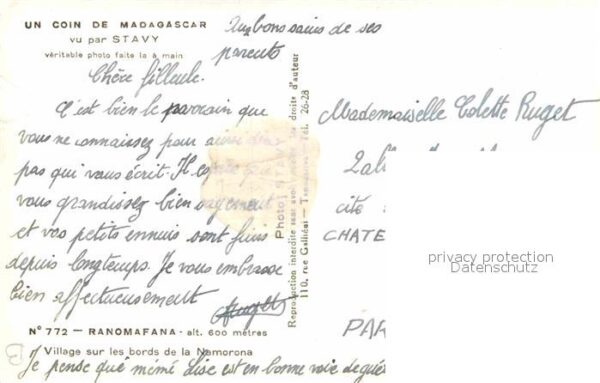 UN COIN DE MADAGASCAR
vu par STAVY
véritable photo faite à la main
Aux bons soins de ses
parents
Chère filleule.
C'est bien le parrain que
vous ne connaissez pour ainsi dire
pas qui vous écrit. Il espère que
vous grandissez bien sagement
et vos petits ennuis sont finis
depuis longtemps. Je vous embrasse
bien affectueusement
N° 772 - RANOMAFANA - alt. 600 mètres
Village sur les bords de la Namorona
Je pense que mémé Lise est en bonne voie de guér
Photo STAVY
Reproduction interdite sans droits d'auteur
110, rue Galliéni - Tél. 26-28
Mademoiselle Colette Ruget
cité
CHATE
PAR
privacy protection
Datenschutz